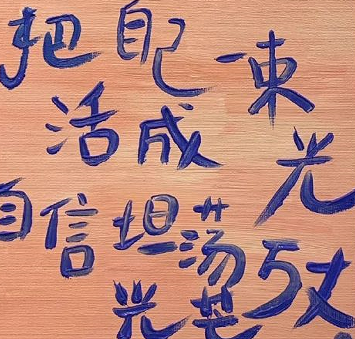 把自己
活成
一束
光
自信坦荡
光芒
万丈。